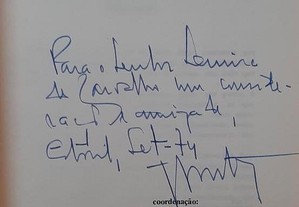 Para o Senhor
de Carvalho com conside-
ração e amizade,
Estoril, Set-74
coordenação: